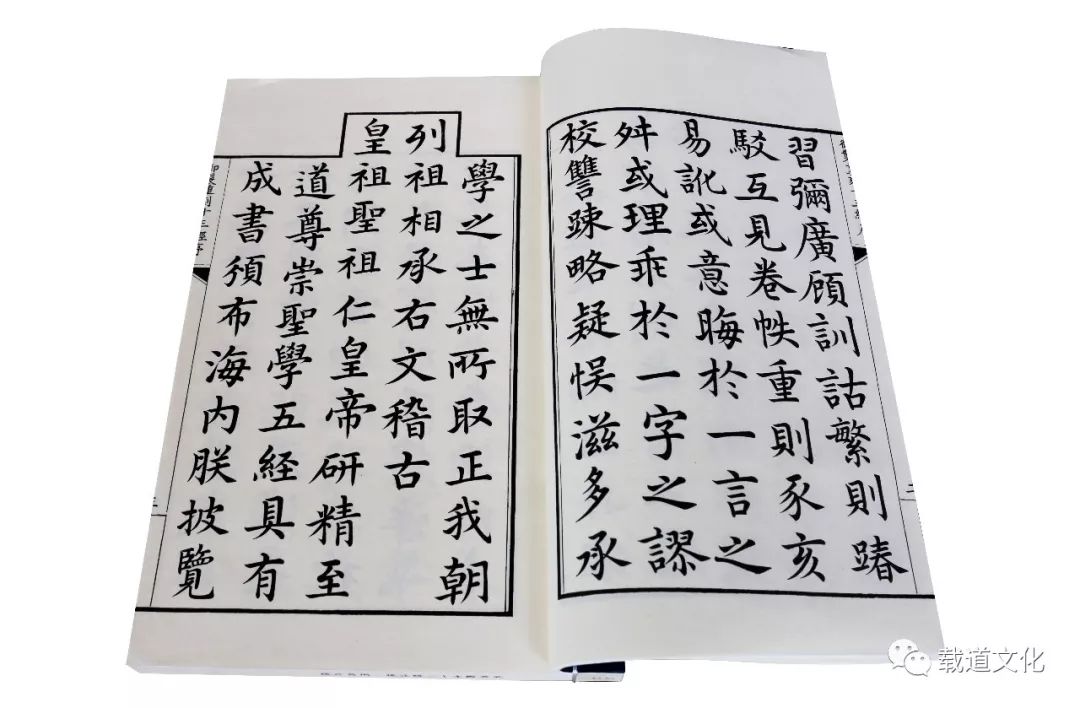 習彌廣顧訓詁繁則踳
駁互見卷帙重則豕亥
易訛或意晦於一言之
舛或理乖於一字之謬
校讐踈略疑悞滋多承
學之士無所取正我朝
列祖相承右文稽古
皇祖聖祖仁皇帝研精至
道尊崇聖學五經具有
成書頒布海内朕披覽
载道文化